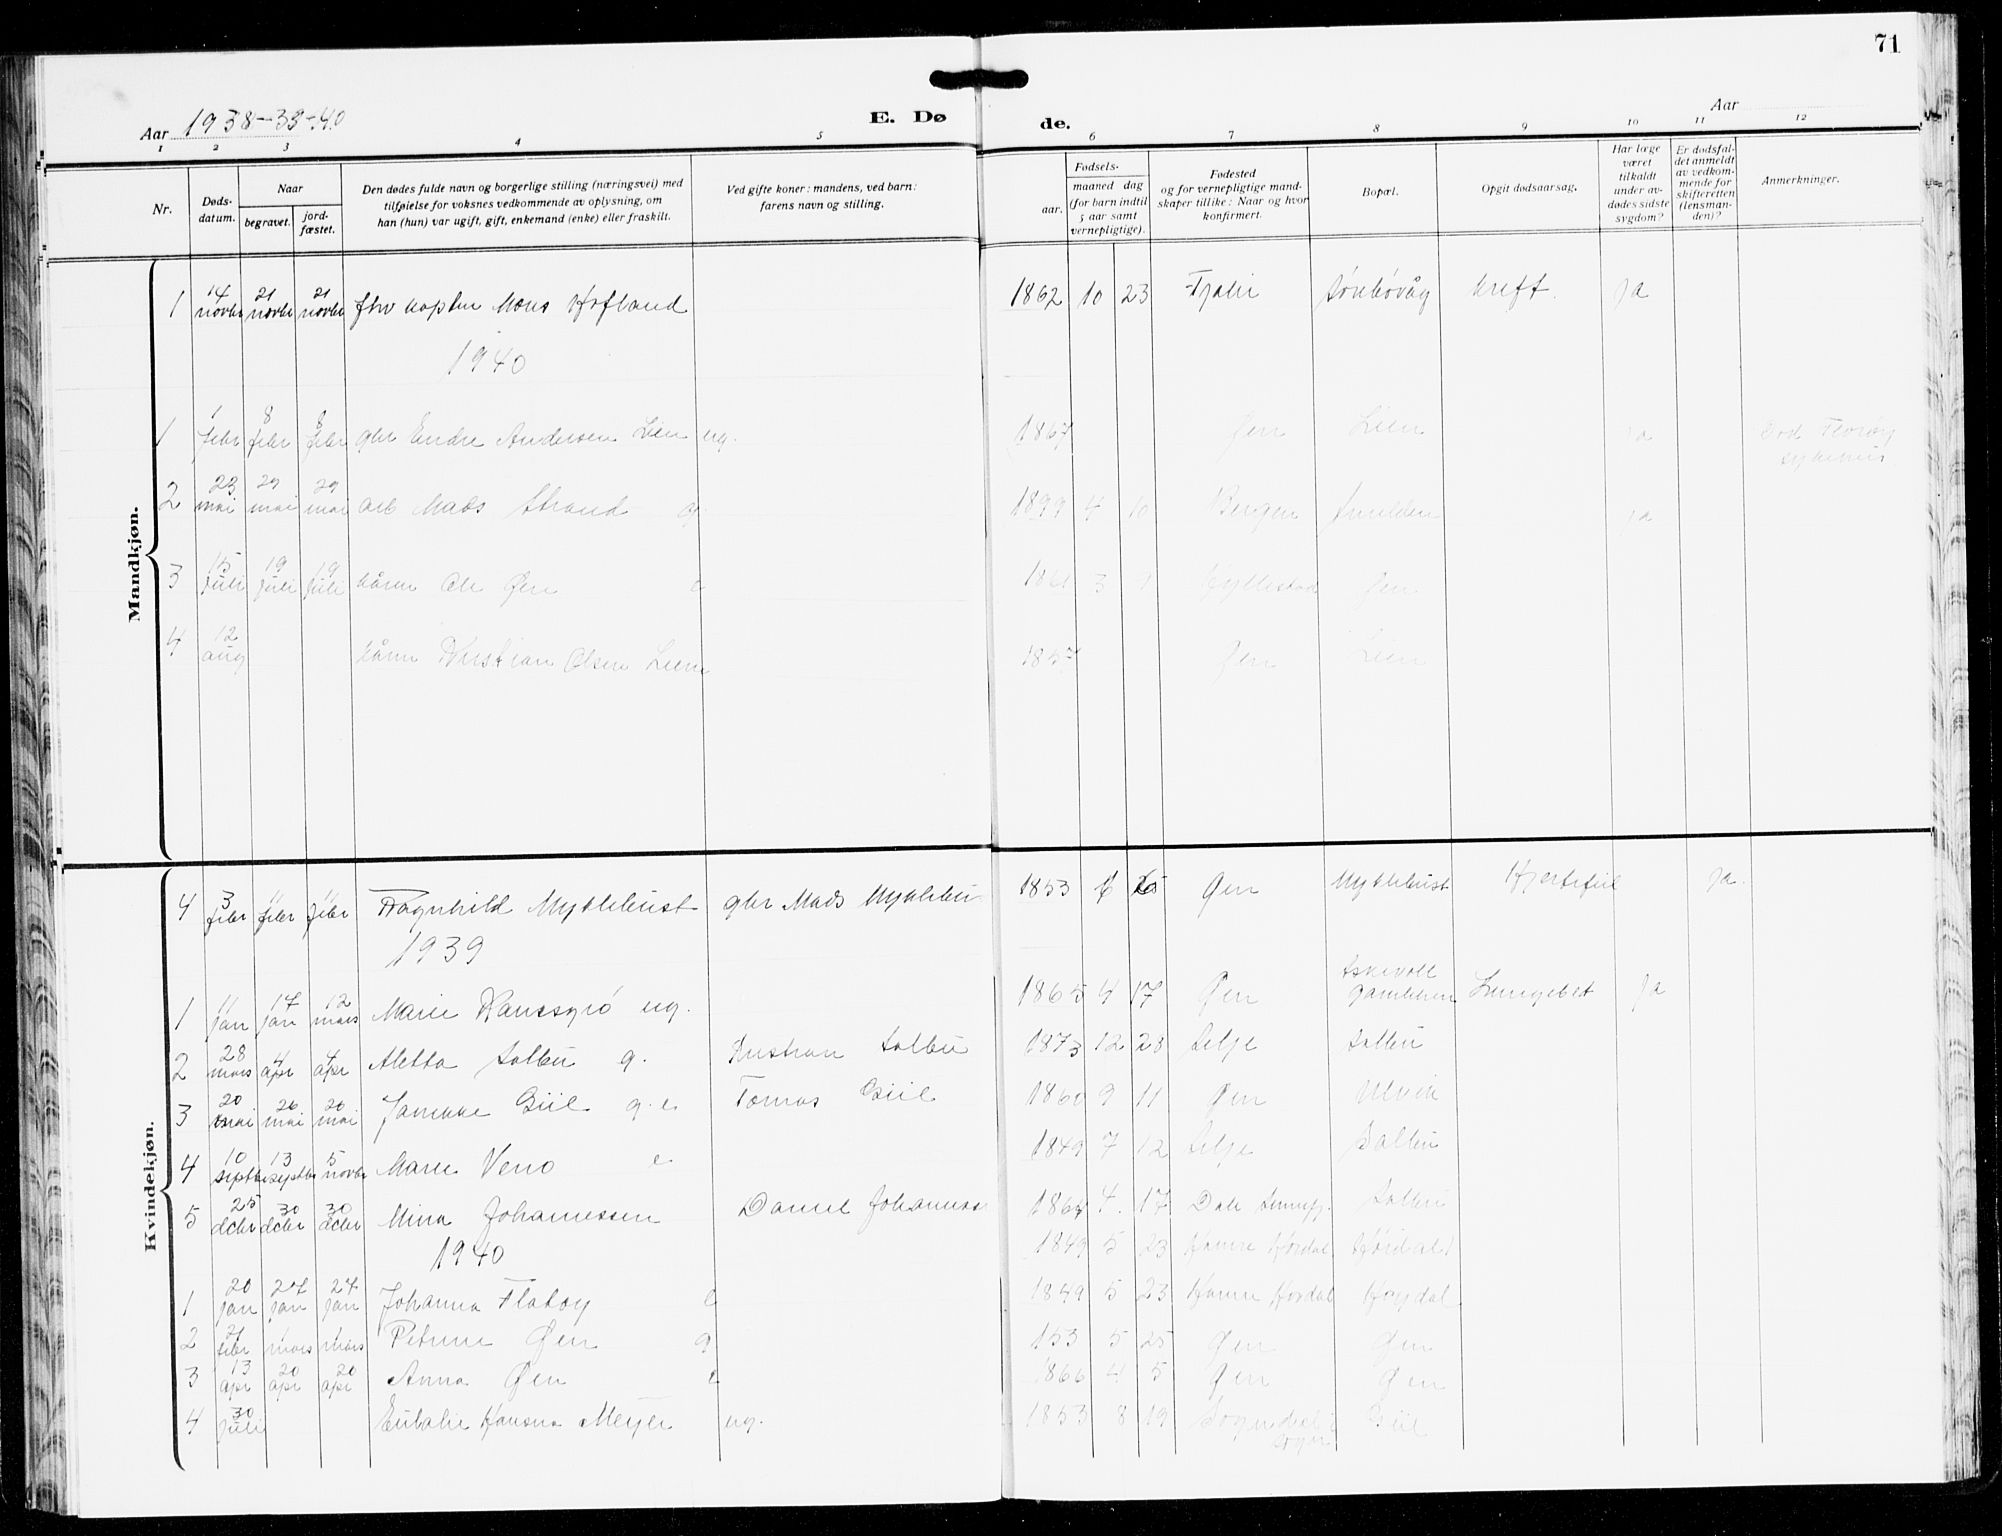 71
Aar 1938-39-40
E. Dø de.
Aar
1 2 3 4 5 6 7 8 9 10 11 12
Nr.
Dødsdatum.
Naar
begravet.
jordfæstet.
Den dødes fulde navn og borgerlige stilling (næringsvei) med
tilføielse for voksnes vedkommende av oplysning, om
han (hun) var ugift, gift, enkemand (enke) eller fraskilt.
Ved gifte koner: mandens, ved barn:
farens navn og stilling.
Fødsels-
aar.
maaned dag
(for barn indtil
5 aar samt
vernepligtige).
Fødested
og for vernepligtige mand-
skaper tillike: Naar og hvor
konfirmert.
Bopæl.
Opgit dødsaarsag.
Har læge
været
tilkaldt
under av-
dødes sidste
sygdom?
Er dødsfal-
det anmeldt
av vedkom-
mende for
skifteretten
(lensman-
den)?
Anmerkninger.
Mandkjøn.
1 14 novbr 21 novbr 21 novbr fhv kaptein Mons Hofland 1862 10 23 Fjaler kreft. ja
1940
1 1 febr 8 febr 8 febr gbr Endre Andersen Lien ug. 1867 Øen Lien ja Død Florøy sykehus
2 23 mai 29 mai 29 mai arb Mads Strand g 1899 4 10 Bergen Smilden ja
3 15 juli 19 juli 19 juli kårm Ole Øen e 1861 3 9 Hyllestad Øen
4 12 aug kårm Kristian Olsen Lien 1857 Øen Lien
Kvindekjøn.
4 3 febr 11 febr 11 febr Ragnhild Myklebust gbr Mads Myklebu 1853 6 Øen Myklebust Hjertefeil ja.
1939
1 11 jan 17 jan 12 mars Marie Hanssgrø ug. 1865 4 17 Øen Askvoll gamlehem Lungebet ja
2 28 mars 4 apr 4 apr Aletta Solbu g. Kristian Solbu 1873 12 28 Selje Solbu
3 20 mai 26 mai 20 mai Jamikke Giil g.e Tomas Giil 1860 9 11 Øen Ulvik
4 10 septbr 13 septbr 5 novbr Marie Veno e 1849 7 12 Selje Solbu
5 25 dcbr 30 dcbr 30 dcbr Mina Johannessen Daniel Johanness 1864 4. 17 Dale Sunnfj. Solbu
1940 1849 5 23 Hamre Hordal
1 20 jan 27 jan 27 jan Johanna Flatøy e 1849 5 23 Hamre Hordal Høydal
2 21 febr 1 mars 1 mars Petrine Øen g 153 5 25 Øen Øen
3 13 apr 20 apr 20 apr Anna Øen e 1866 4 5 Øen Øen
4 30 juli Eulalie Hansna Meyer ug. 1853 8 19 Sogndal Sogn Giil